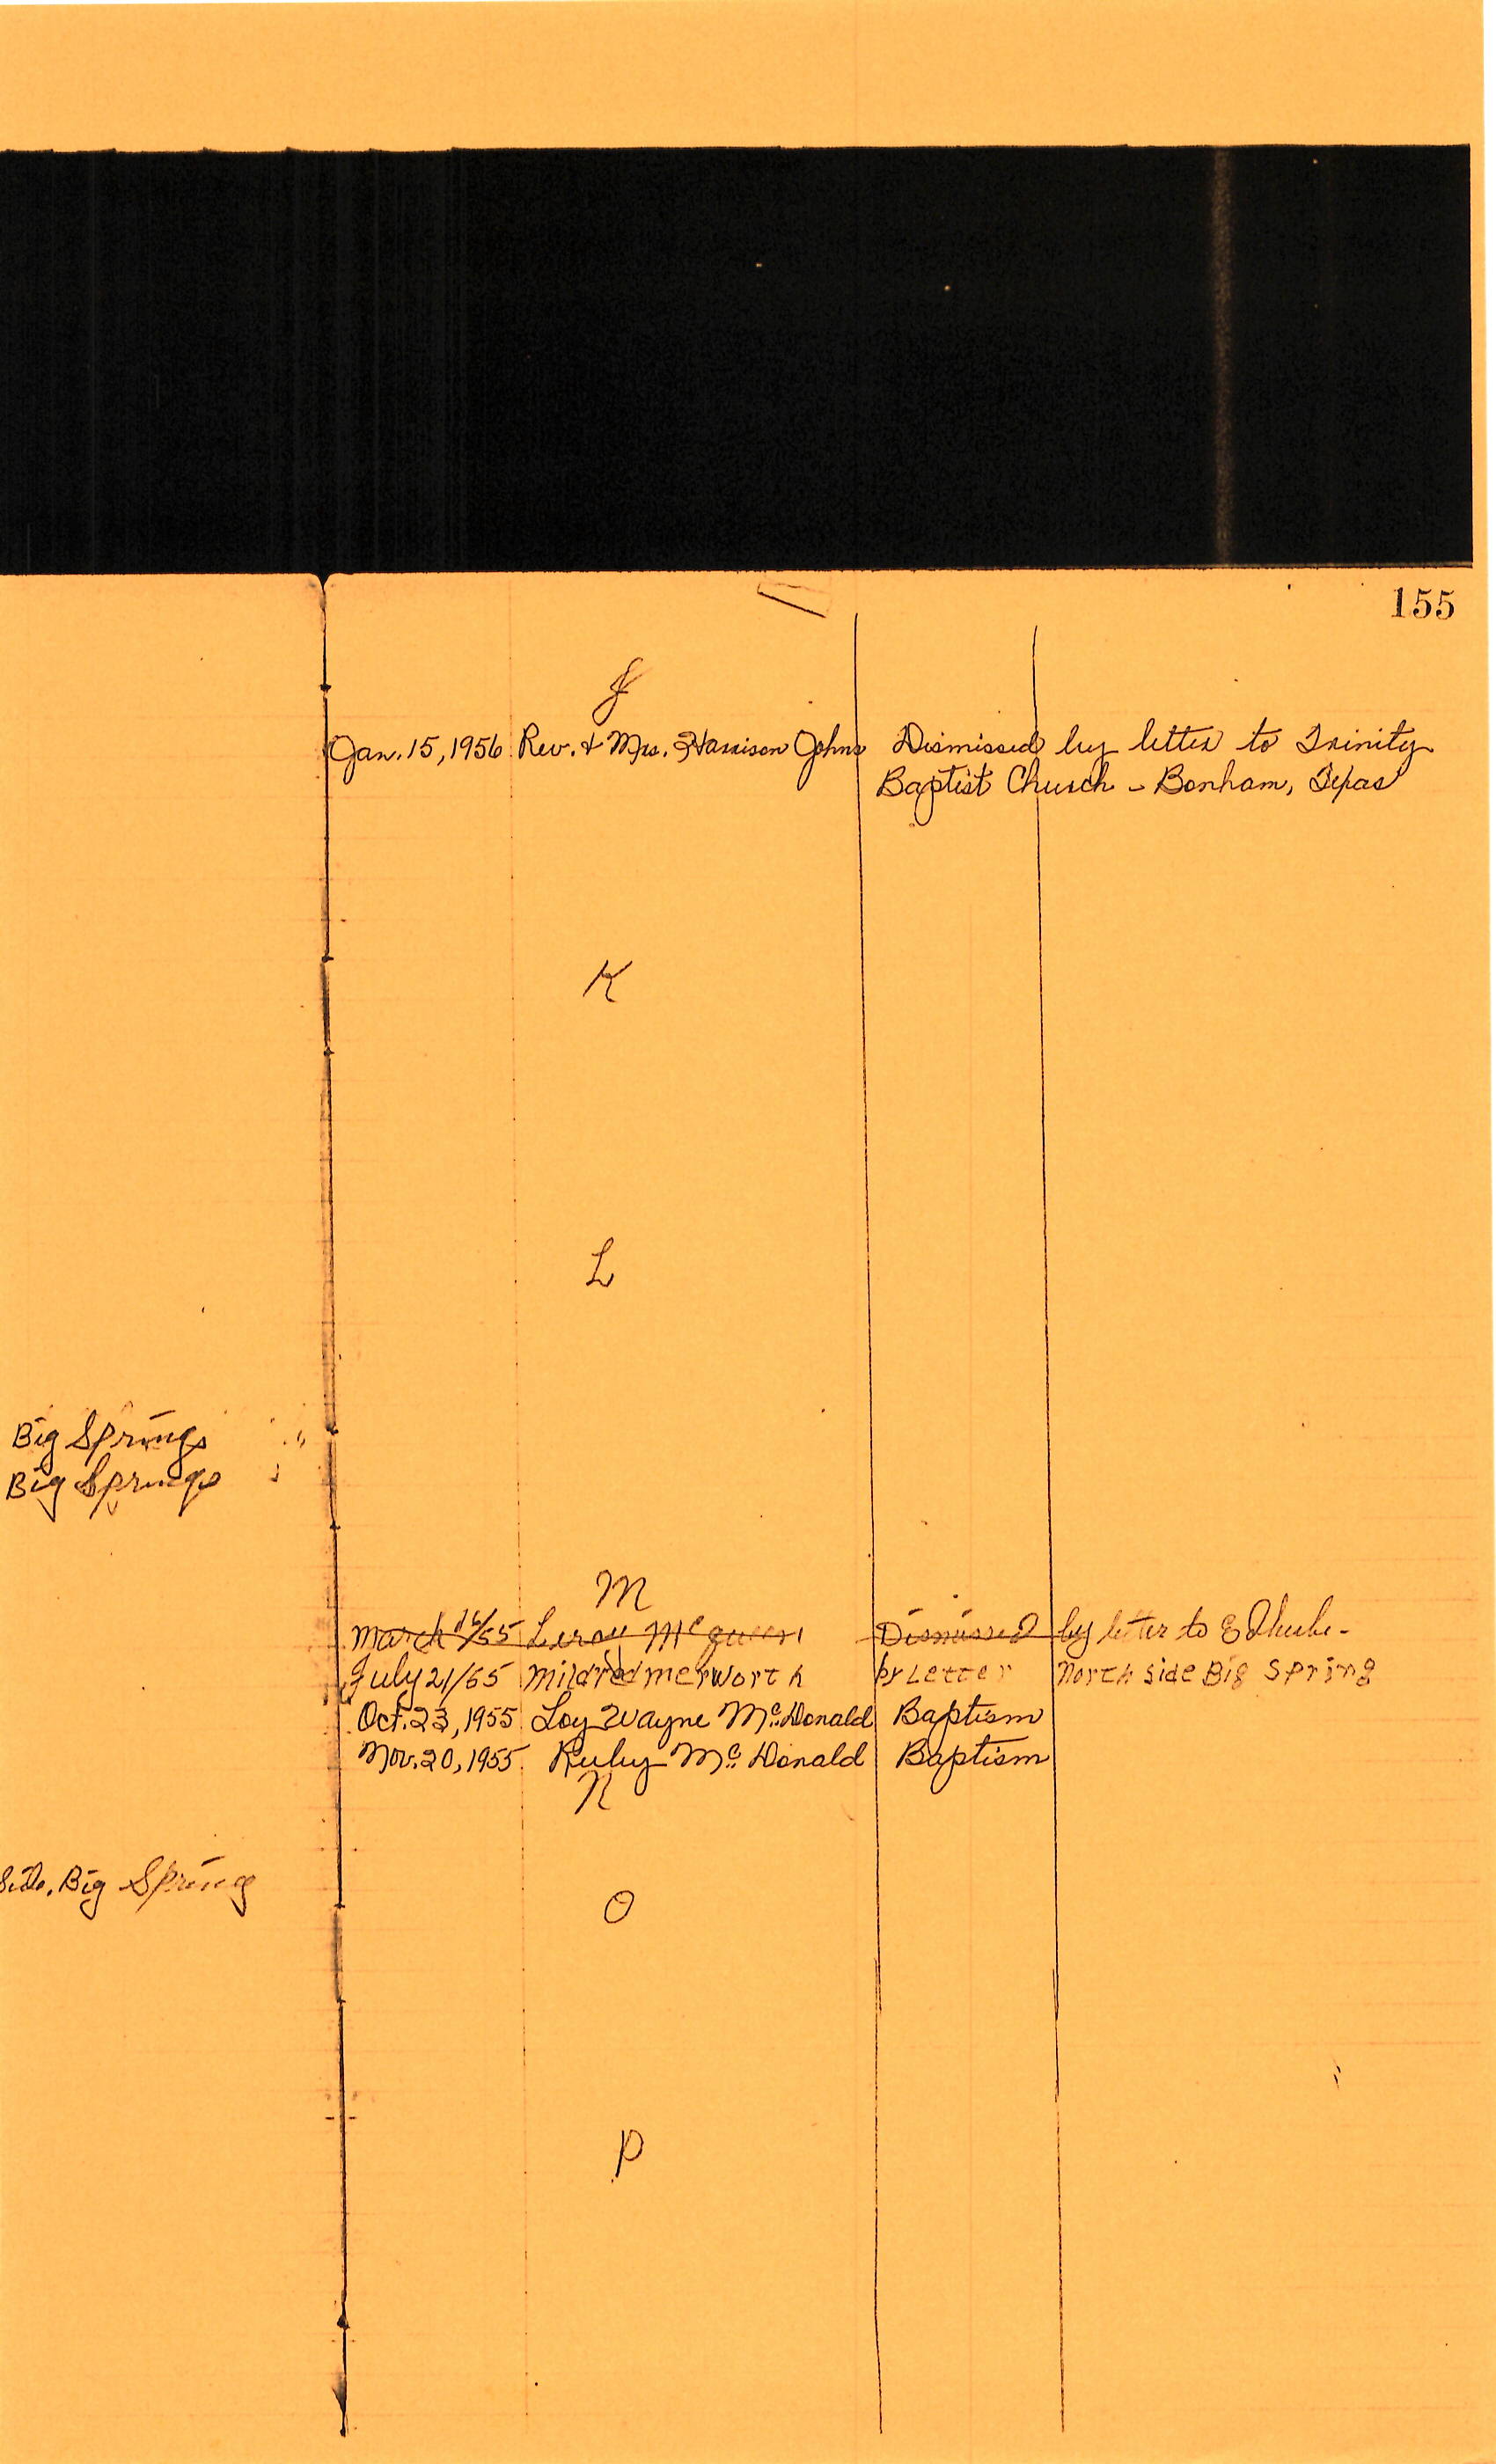 155
J
Jan. 15, 1956 Rev. & Mrs. Harrison Johns Dismissed by letter to Trinity
Baptist Church - Bonham, Texas
K
L
Big Springs
Big Springs
M
March 16/55 Leroy McQueen Dismissed by letter to
July 21/55 Mildred Merworth by Letter North Side Big Spring
Oct. 23, 1955 Loy Wayne McDonald Baptism
Nov. 20, 1955 Ruby McDonald Baptism
N
Side, Big Spring
O
P